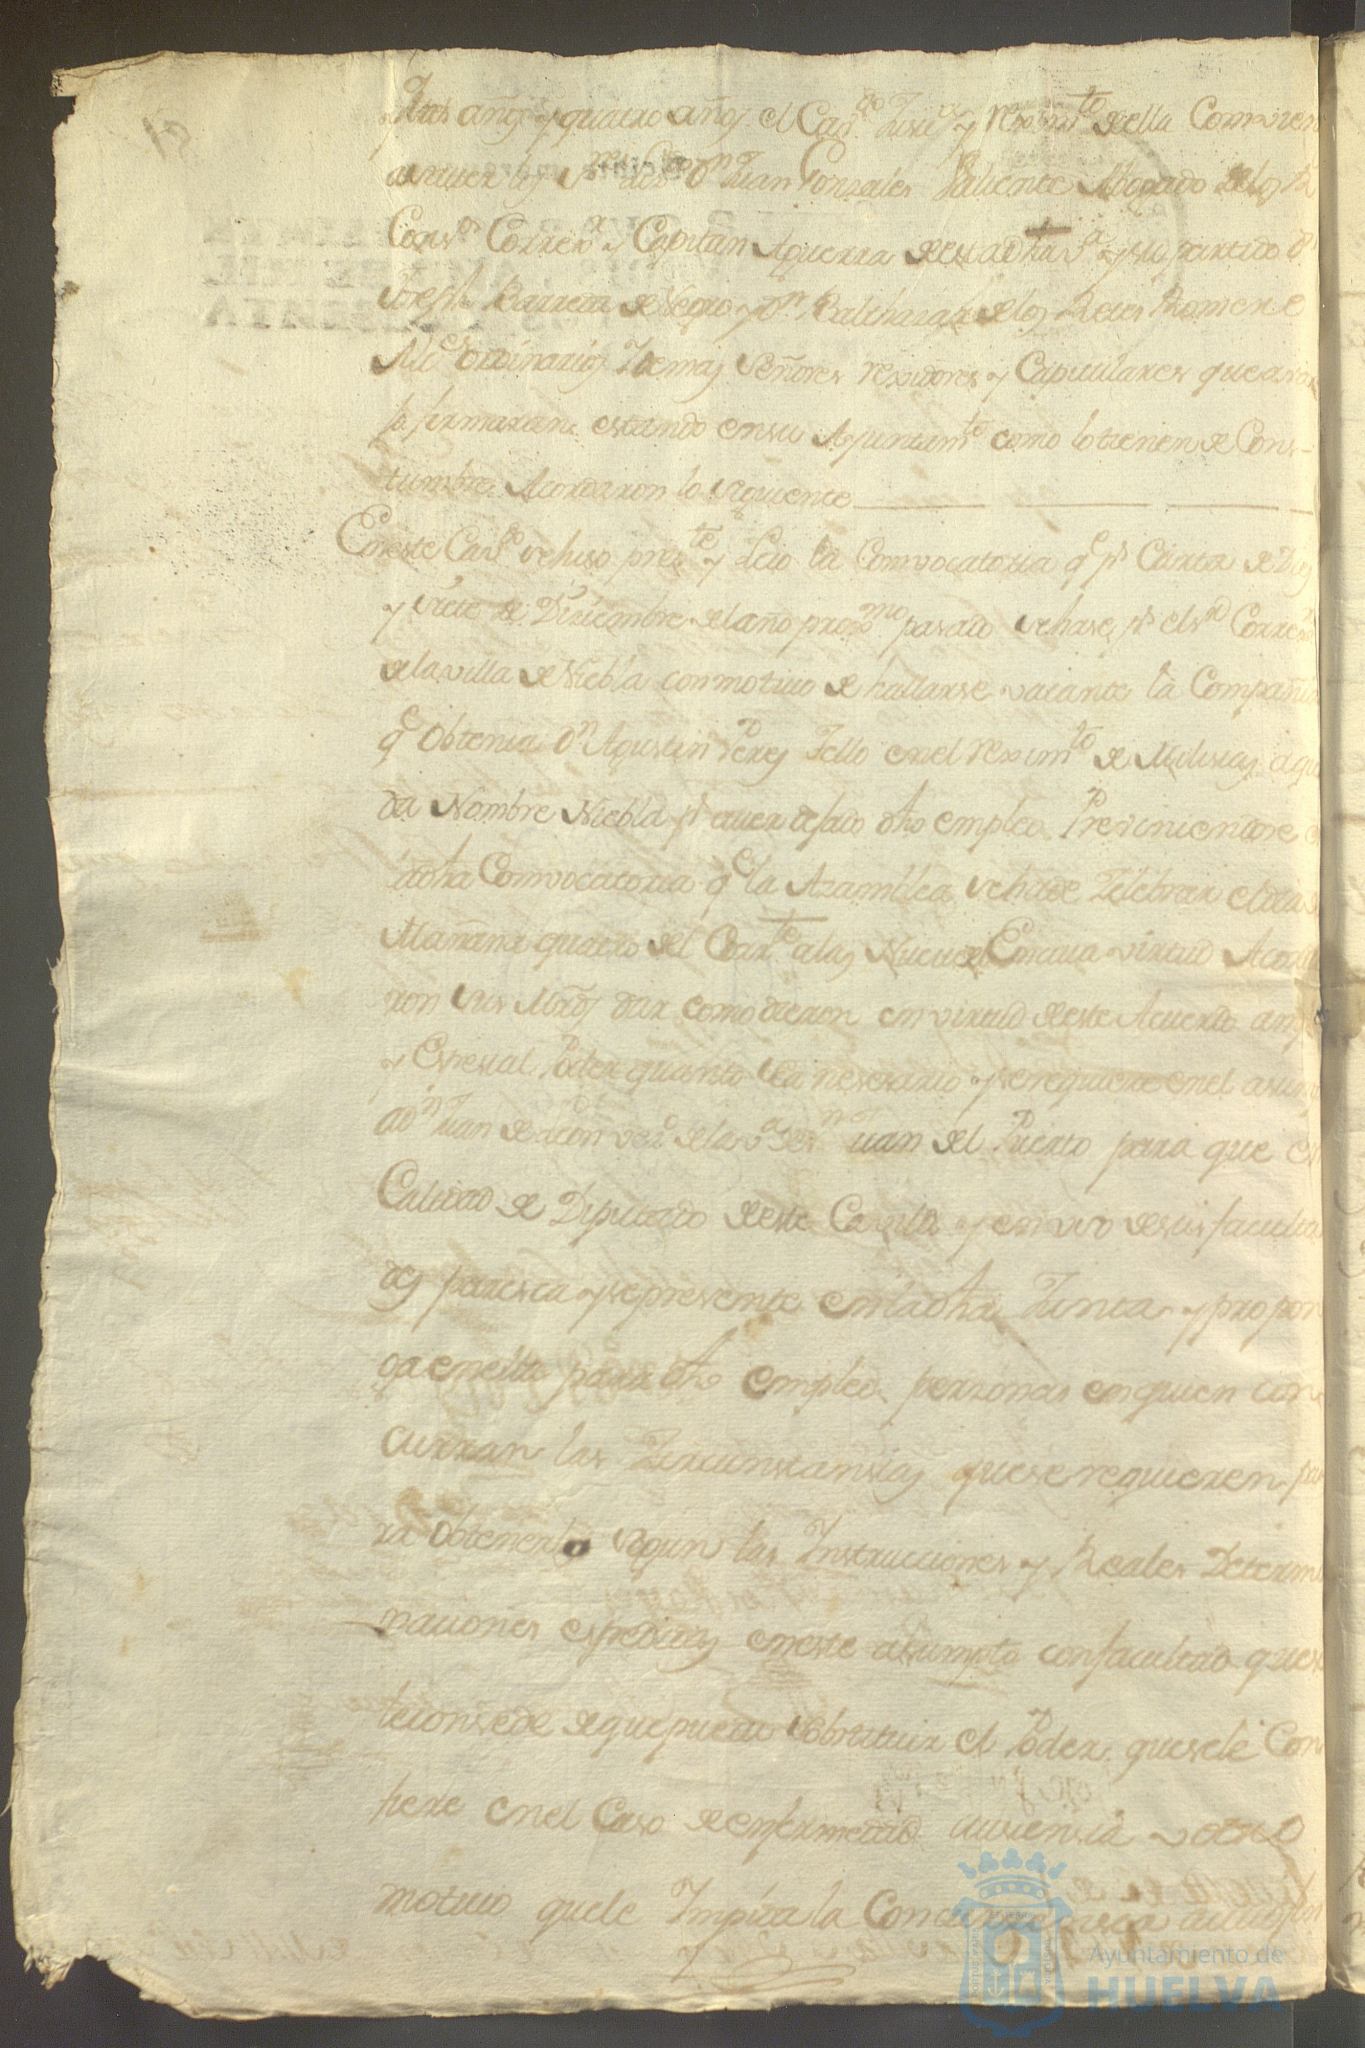 tres años y quatro años el Cav.do Just.a y rexim.to de ella Combiene
a saver los S.res Lizdo. Dn Juan Gonzales Valiente Abogado de los R.s
Cons.os Correx.or y Capitan Aguerra de esta dha V.a y su partido Dn
Joseph Barreda de Negro y Dn Balthasar de los Reies Romero
Alc.es ordinarios y demas Señores rexidores y Capitulares que avaxo
lo firmaran estando en su Ayuntam.to como lo tienen de Cons-
tumbre Acordaron lo siguiente
En este Cav.do se hiso pres.te y Leio la Convocatoria q.e p.r Carta de Diez
y siete de Disiembre del año prox.mo pasado se hase p.r el s.or Correx.or
de la villa de Niebla con motivo de hallarse vacante la Compañia
q.e obtenia Dn Agustin Peres Tello en el rexim.to de Milisias a que
da Nombre Niebla p.r aver dejado dho empleo. Previniendose en
dicha Convocatoria q.e la Asamblea se ha de Zelebrar el dia de
Mañana quatro del Corr.te a las Nueve En cuia virtud Acorda
ron sus Mrds dar como dieron en virtud de este Acuerdo amplio
y Espesial Poder quanto sea nesesario y se requiere en el asunto
a Dn Juan de Leon vez.o de la v.a de Sn Juan del Puerto para que en
Calidad de Diputado de este Cavildo y en uso de sus faculta
des paresca y represente en la dha Junta y propon
ga en ella para dho empleo personas en quien con
curran las Zircunstansias que se requieren pa
ra obtenerlo segun las Instrucciones y Reales Determi
naciones espedidas en este asumpto con facultad que se
le consede de que pueda sobstituir el Poder que se le Con
fiere en el Caso de enfermedad ausensia u otro
motivo que le Impida la Concurrensia
Ayuntamiento de
HUELVA